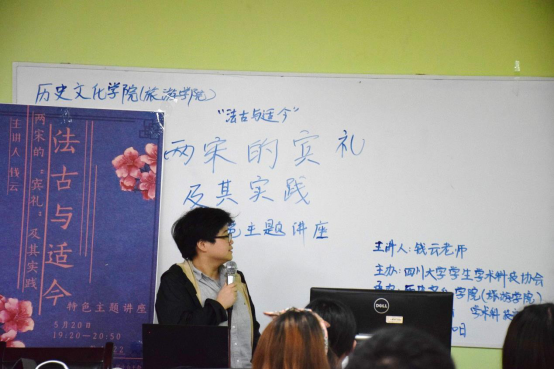 历史文化学院(旅游学院)
"法古与适今"
两宋的宾礼
及其实践
色主题讲座
主讲人:钱云老师
主办:四川大学学生学术科技协会
学院(旅游学院)
法古与适今
两宋的"宾礼"及其实践
主讲人 钱云
特色主题讲座
5月20日
19:20—20:50
DELL